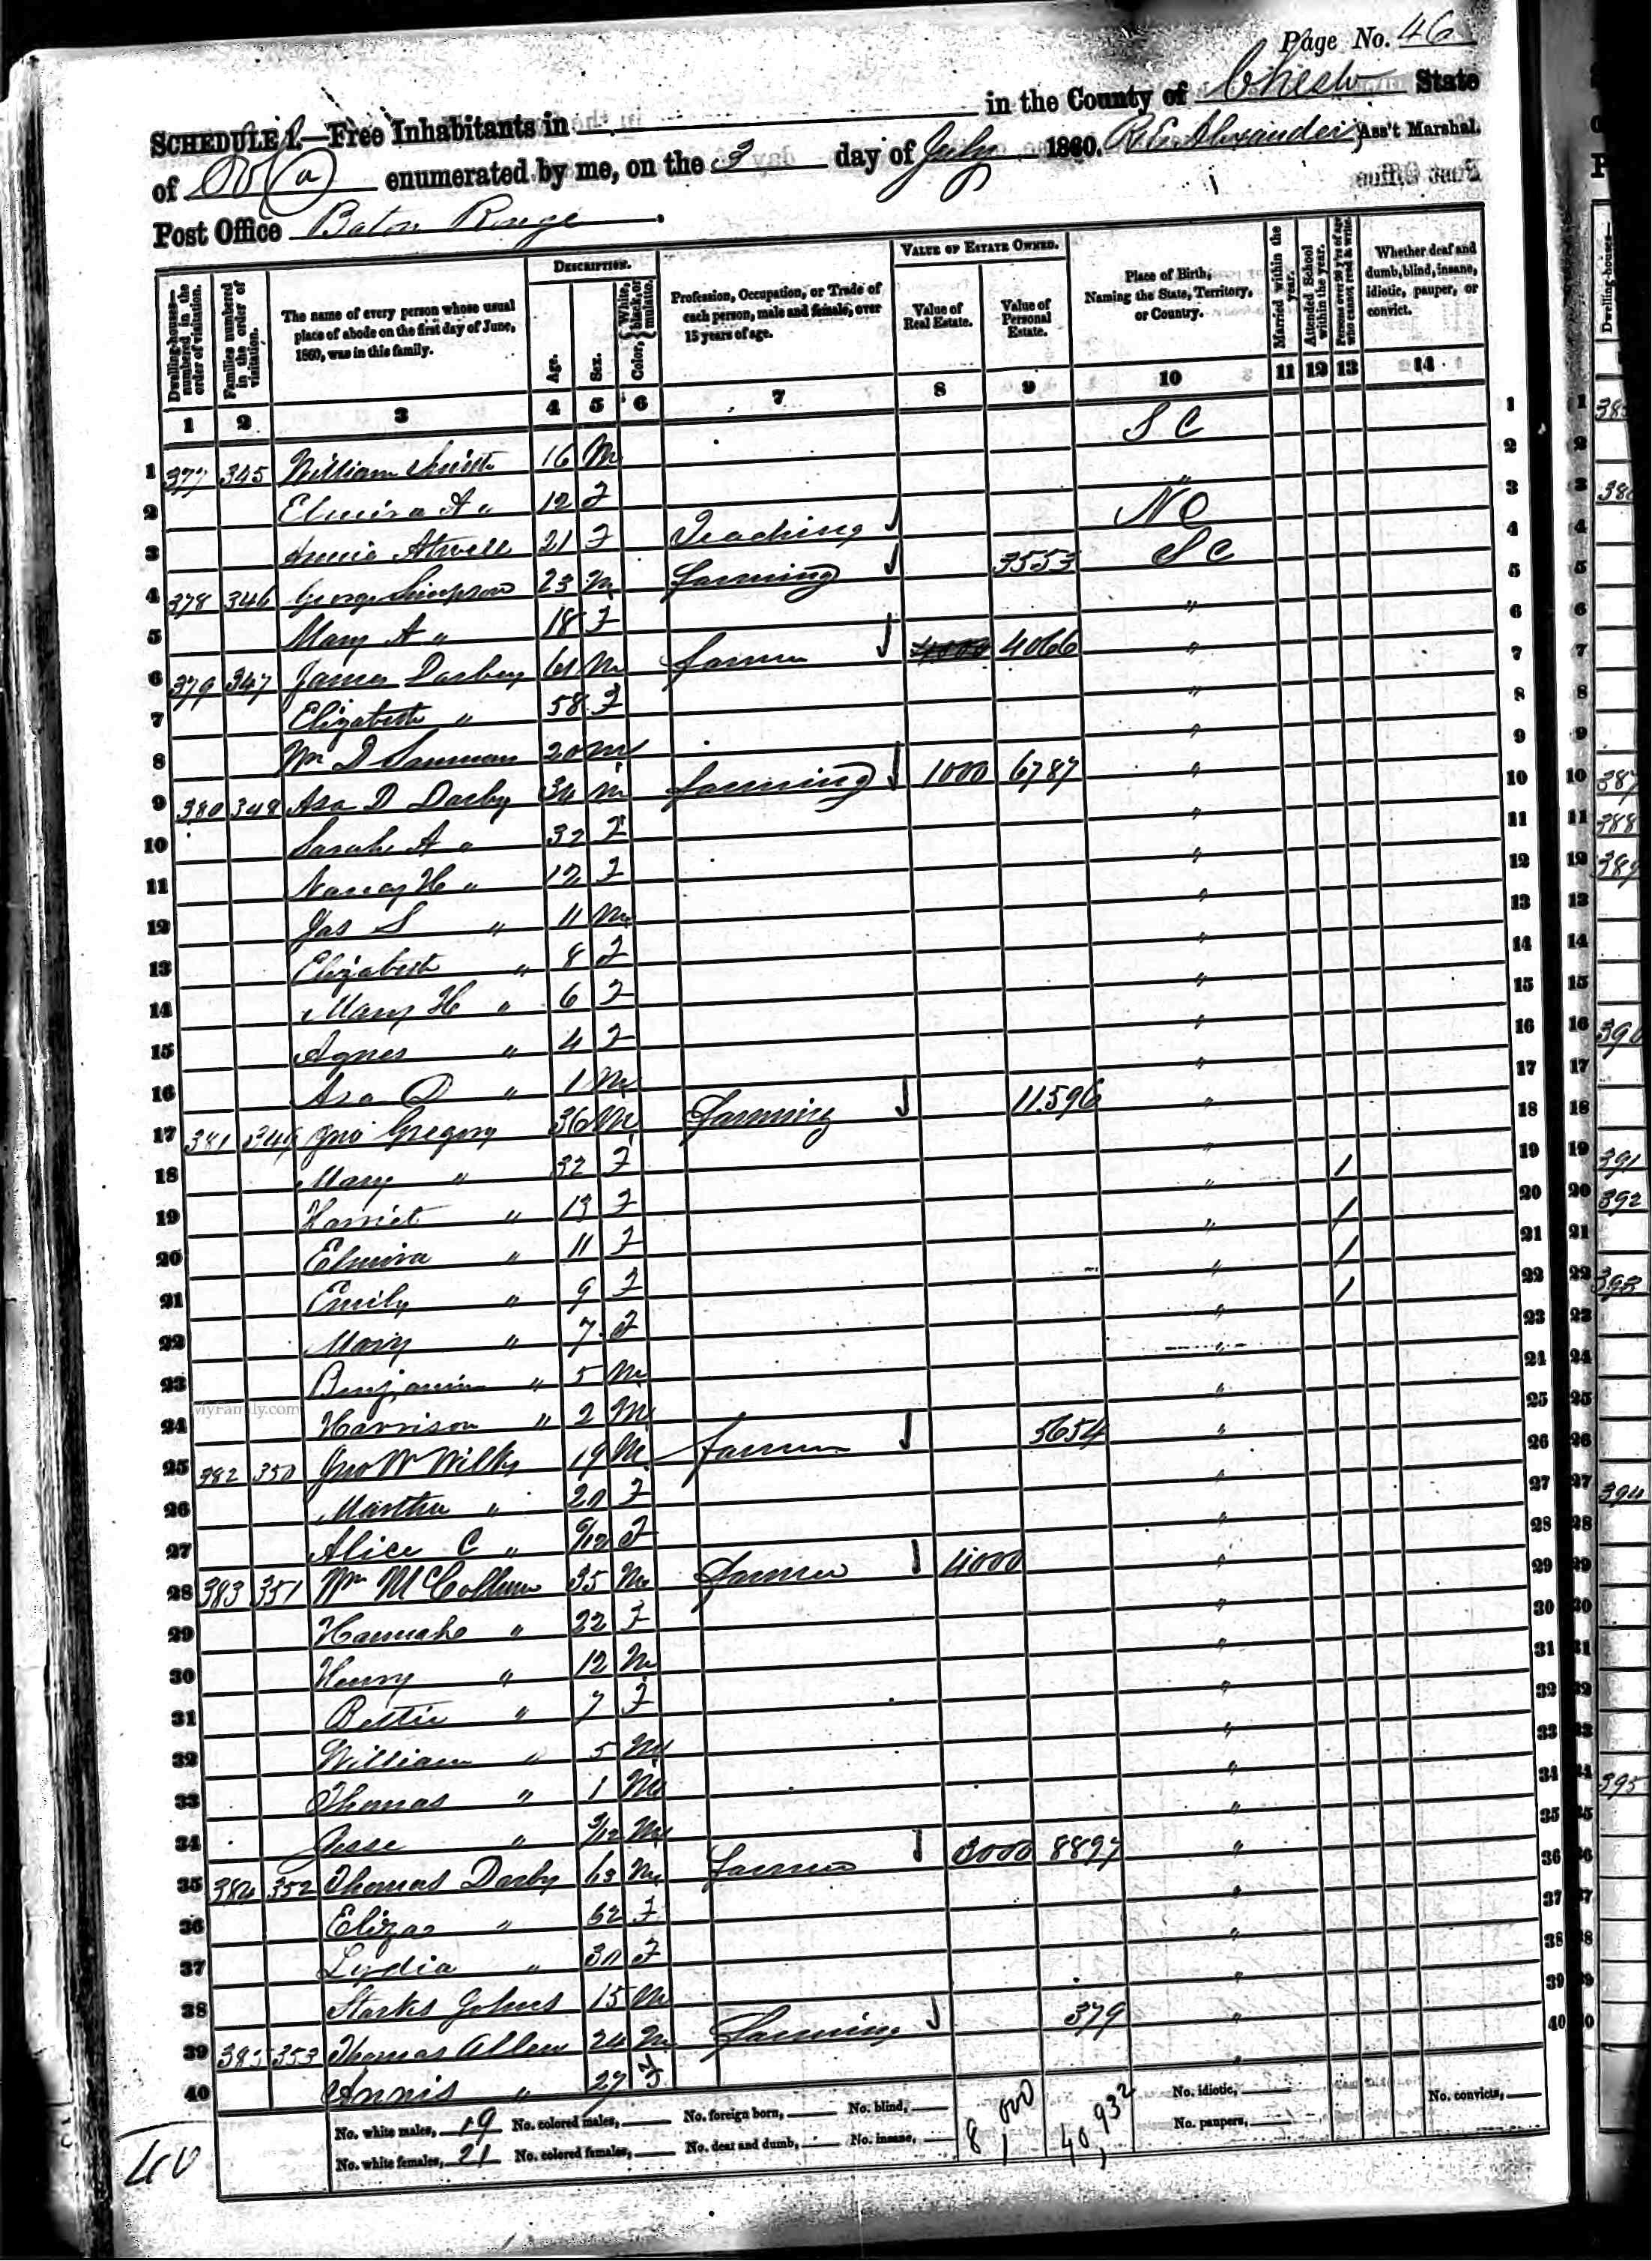 Page No. 46
SCHEDULE 1.—Free Inhabitants in in the County of Chester State
of So Ca enumerated by me, on the 3 day of July 1860. R. E. Alexander Ass't Marshal.
Post Office Baton Rouge.
Dwelling-houses—numbered in the order of visitation.
Families numbered in the order of visitation.
The name of every person whose usual place of abode on the first day of June, 1860, was in this family.
DESCRIPTION.
Age.
Sex.
Color, { White, black, or mulatto.
Profession, Occupation, or Trade of each person, male and female, over 15 years of age.
VALUE OF ESTATE OWNED.
Value of Real Estate.
Value of Personal Estate.
Place of Birth, Naming the State, Territory, or Country.
Married within the year.
Attended School within the year.
Persons over 20 y'rs of age who cannot read & write.
Whether deaf and dumb, blind, insane, idiotic, pauper, or convict.
1 2 3 4 5 6 7 8 9 10 11 12 13 14
1 377 345 William Smith 16 M S C 1
2 Elmira A " 12 F " 2
3 Annie Atwell 21 F Teaching N C 3
4 378 346 George Simpson 23 M farming 3553 S C 4
5 Mary A " 18 F " 5
6 379 347 James Darbey 61 M farmer 4000 4066 " 6
7 Elizabeth " 58 F " 7
8 Wm D 20 M " 8
9 380 348 Asa D Darby 34 M farming 1000 6787 " 9
10 Sarah A " 32 F " 10
11 Nancy H " 12 F " 11
12 Jas S " 11 M " 12
13 Elizabeth " 8 F " 13
14 Mary H " 6 F " 14
15 Agnes " 4 F " 15
16 Asa D " 1 M " 16
17 381 349 Jno Gregory 36 M farming 11596 " 17
18 Mary " 32 F " 1 18
19 Harriet " 13 F " 1 19
20 Elmira " 11 F " 1 20
21 Emily " 9 F " 1 21
22 Mary " 7 F " 22
23 Benjamin " 5 M " 23
24 Harrison " 2 M " 24
25 382 350 Jno W Wilks 19 M farmer 5654 " 25
26 Martha " 20 F " 26
27 Alice C " 6/12 F " 27
28 383 351 Wm McCollum 35 M farmer 4000 " 28
29 Hannah " 22 F " 29
30 Henry " 12 M " 30
31 Bettie " 7 F " 31
32 William " 5 M " 32
33 Thomas " 1 M " 33
34 Jesse " 3/12 M " 34
35 384 352 Thomas Darby 63 M farmer 3000 8897 " 35
36 Eliza " 52 F " 36
37 Lydia " 30 F " 37
38 Starks Johns 15 M " 38
39 385 353 Thomas Allen 24 M farming 379 " 39
40 Annis " 27 F " 40
No. white males, 19 No. colored males, No. foreign born, No. blind, 8,000 40,932 No. idiotic, No. convicts,
No. white females, 21 No. colored females, No. deaf and dumb, No. insane, No. paupers,
40
MyFamily.com
Dwelling-houses—
387
388
389
390
391
392
393
394
395